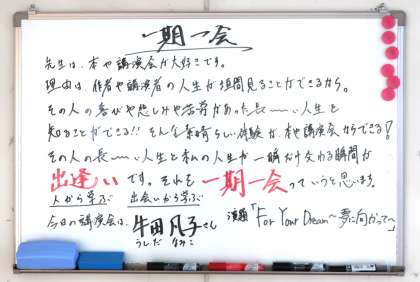 一期一会
先生は、本や講演会が大好きです。
理由は、作者や講演者の人生が垣間見ることができるから。
その人の喜びや悲しみや苦労があった長〜〜い人生を
知ることができる!! そんな素晴らしい体験が本や講演会からできる!
その人の長〜〜い人生と私の人生が一瞬だけ交わる瞬間が
出逢いです。それを一期一会っていうと思います。
人から学ぶ 出会いから学ぶ
今日の講演会は、牛田凡子さん 演題「For Your Dream〜夢に向かって〜」
うしだ なみこ